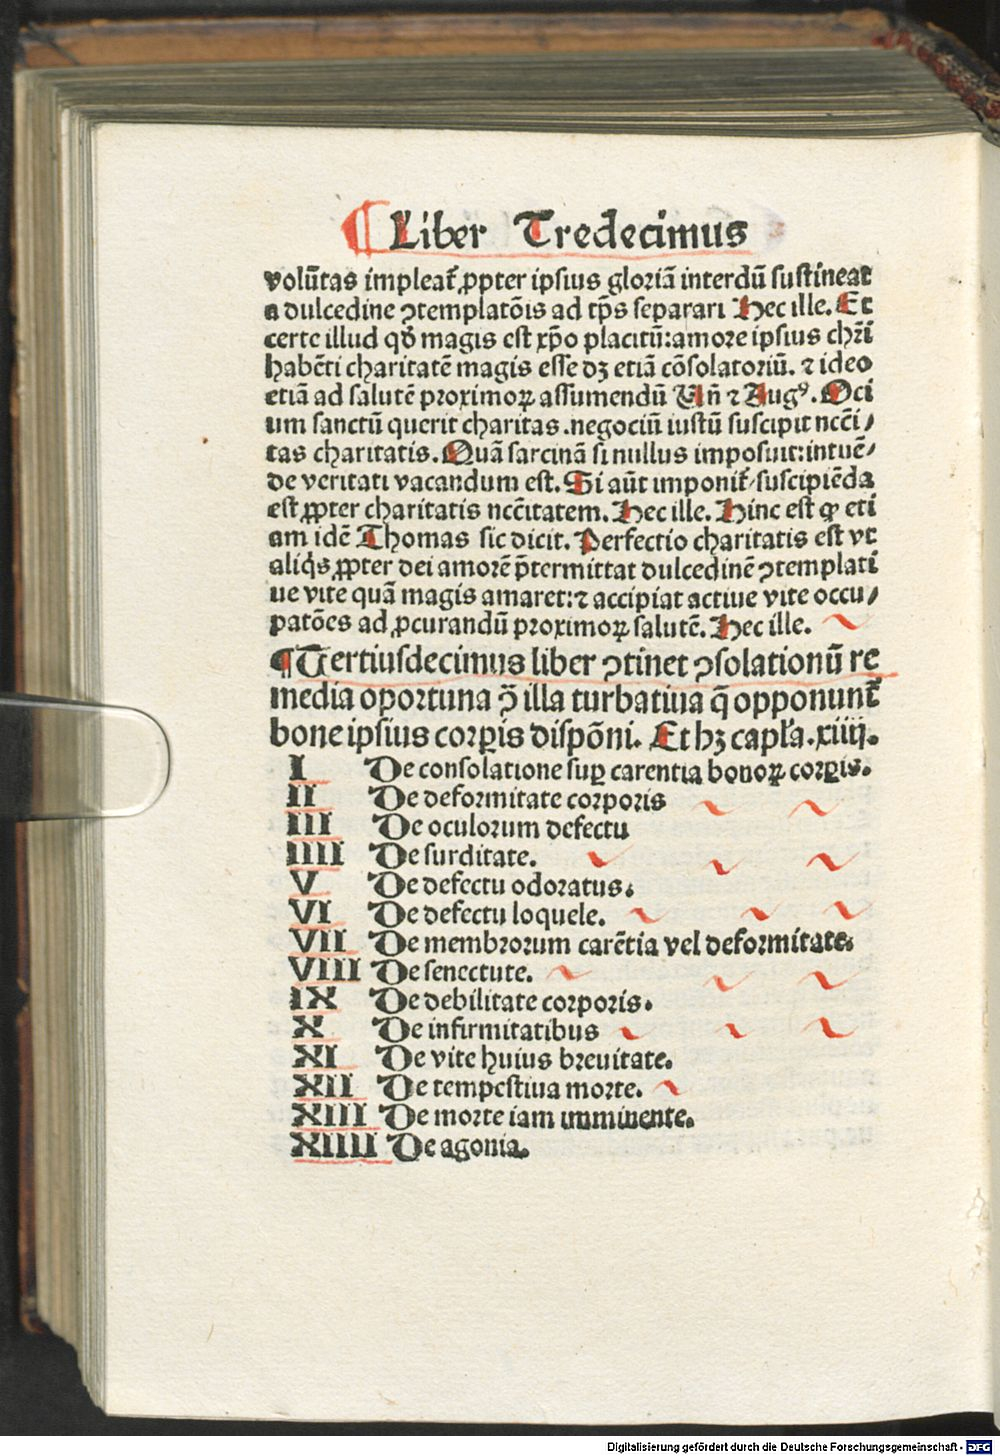 ¶ Liber Tredecimus
volūtas impleat᷑ ꝓpter ipsius gloriā interdū sustineat
a dulcedine ꝯtemplatōis ad tp̄s separari Hec ille. Et
certe illud qd̄ magis est xp̄o placitū: amore ipsius chr̄i
habēti charitatē magis esse dꝫ etiā cōsolatoriū. ⁊ ideo
etiā ad salutē proximoꝝ assumendū Vn̄ ⁊ Augꝰ. Oci
um sanctū querit charitas. negociū iustū suscipit ncc̄i/
tas charitatis. Quā sarcinā si nullus imposuit: intuē/
de veritati vacandum est. Si aūt imponit᷑/ suscipiēda
est ꝓpter charitatis ncc̄itatem. Hec ille. Hinc est ꝙ eti
am idē Thomas sic dicit. Perfectio charitatis est vt
aliq̇s ꝓpter dei amorē p̄termittat dulcedinē ꝯtemplati
ue vite quā magis amaret: ⁊ accipiat actiue vite occu/
patōes ad ꝓcurandū proximoꝝ salutē. Hec ille.
¶ Tertiusdecimus liber ꝯtinet ꝯsolationū re
media oportuna ꝯ̄ illa turbatiua q̄ opponunt᷑
bone ipsius corꝑis dispōni. Et hꝫ capl'a. xiiij.
I De consolatione suꝑ carentia bonoꝝ corꝑis.
II De deformitate corporis
III De oculorum defectu
IIII De surditate.
V De defectu odoratus.
VI De defectu loquele.
VII De membrorum carētia vel deformitate.
VIII De senectute.
IX De debilitate corporis.
X De infirmitatibus
XI De vite huius breuitate.
XII De tempestiua morte.
XIII De morte iam imminente.
XIIII De agonia.
Digitalisierung gefördert durch die Deutsche Forschungsgemeinschaft - DFG